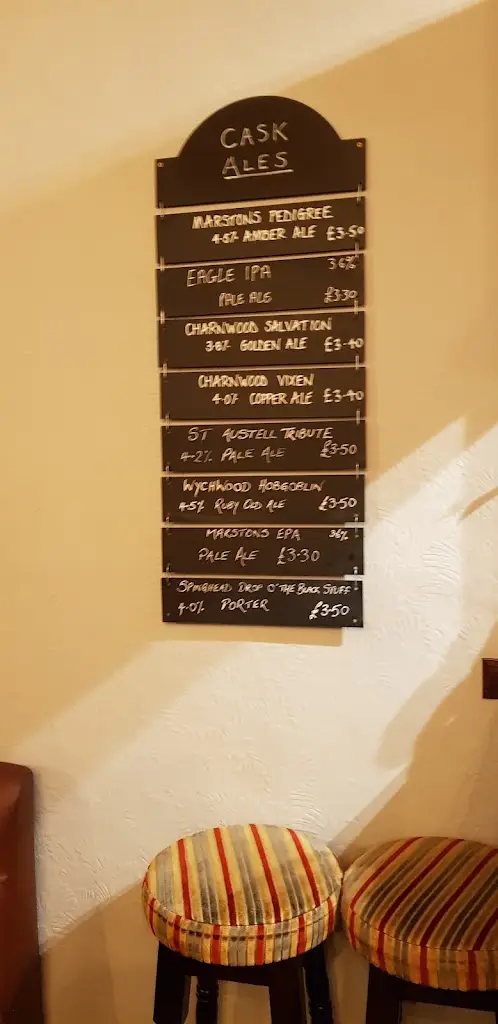 CASK
ALES
MARSTONS PEDIGREE
4.5% AMBER ALE £3.50
EAGLE IPA 3.6%
PALE ALE £3.30
CHARNWOOD SALVATION
3.8% GOLDEN ALE £3.40
CHARNWOOD VIXEN
4.0% COPPER ALE £3.40
ST AUSTELL TRIBUTE
4.2% PALE ALE £3.50
WYCHWOOD HOBGOBLIN
4.5% RUBY OLD ALE £3.50
MARSTONS EPA 3.6%
PALE ALE £3.30
SPRINGHEAD DROP O' THE BLACK STUFF
4.0% PORTER £3.50